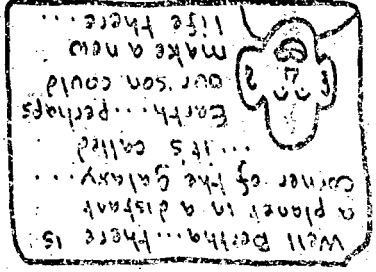 Well Bertha....there is
a planet in a distant
corner of the galaxy....
...it's called
Earth....perhaps
our son could
make a new
life there....